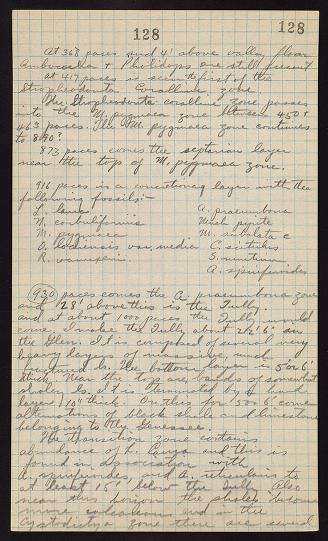 128
128
At 368 paces and 4' above valley floor
Ambocoelia & Pholidops are still present
at 417 paces is seen the first of the
Stropheodonta Coralline zone.
The Stropheodonta coralline zone passes
into the M. pygmaea zone between 450 &
463 paces. The M. pygmaea zone continues
to
873 paces comes the septarian layer
near the top of M. pygmaea zone.
916 paces is a concretionary layer with the
following fossils:-
L.
N. corbuliformis
M. pygmaea
O. var. media
R. vanuxemi
A. praeumbona
Much pyrite
M.
C.
S.
A. spinuferoides
(930) paces comes the A. praeumbona zone
and 28' above this is the Tully.
and at about 1000 paces the Tully would
come. I make the Tully about 21½'6" in
the Glen. It is composed of several very
heavy layers of massive, much
ls. The bottom layer is 5' or 6'
thick. Near the top are bands of somewhat
shaley ls. It is terminated by a hard
layer 10" thick. On this for 5' or 6' come
alternations of black shale and limestone
belonging to the Genesee.
The transition zone contains
abundance of and this is
found in association with
A. and A. reticularis to
at least 15' below the Tully. Also
near this horizon the shales become
more calcareous and in the
Cystodictya zone there are several